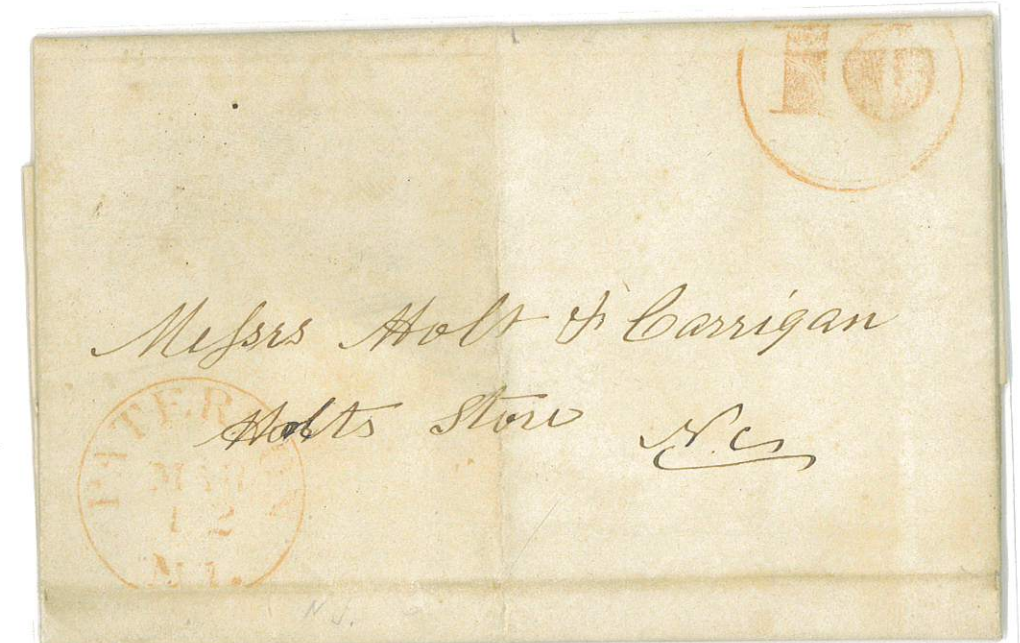 10
Messrs Holt & Carrigan
Holts Store N.C.
PATERSON
MAR
12
N.J.
N.J.